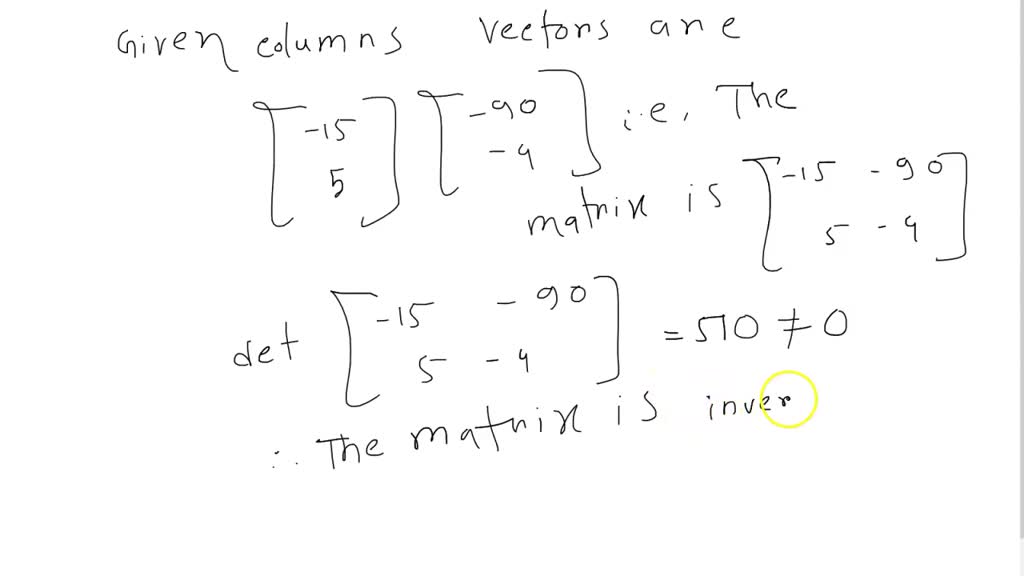 Given columns vectors are
[-15 5] [-90 -4] i.e, The
matrix is [-15 -90 5 -4]
det [-15 -90 5 -4] = 510 ≠ 0
∴ The matrix is inver